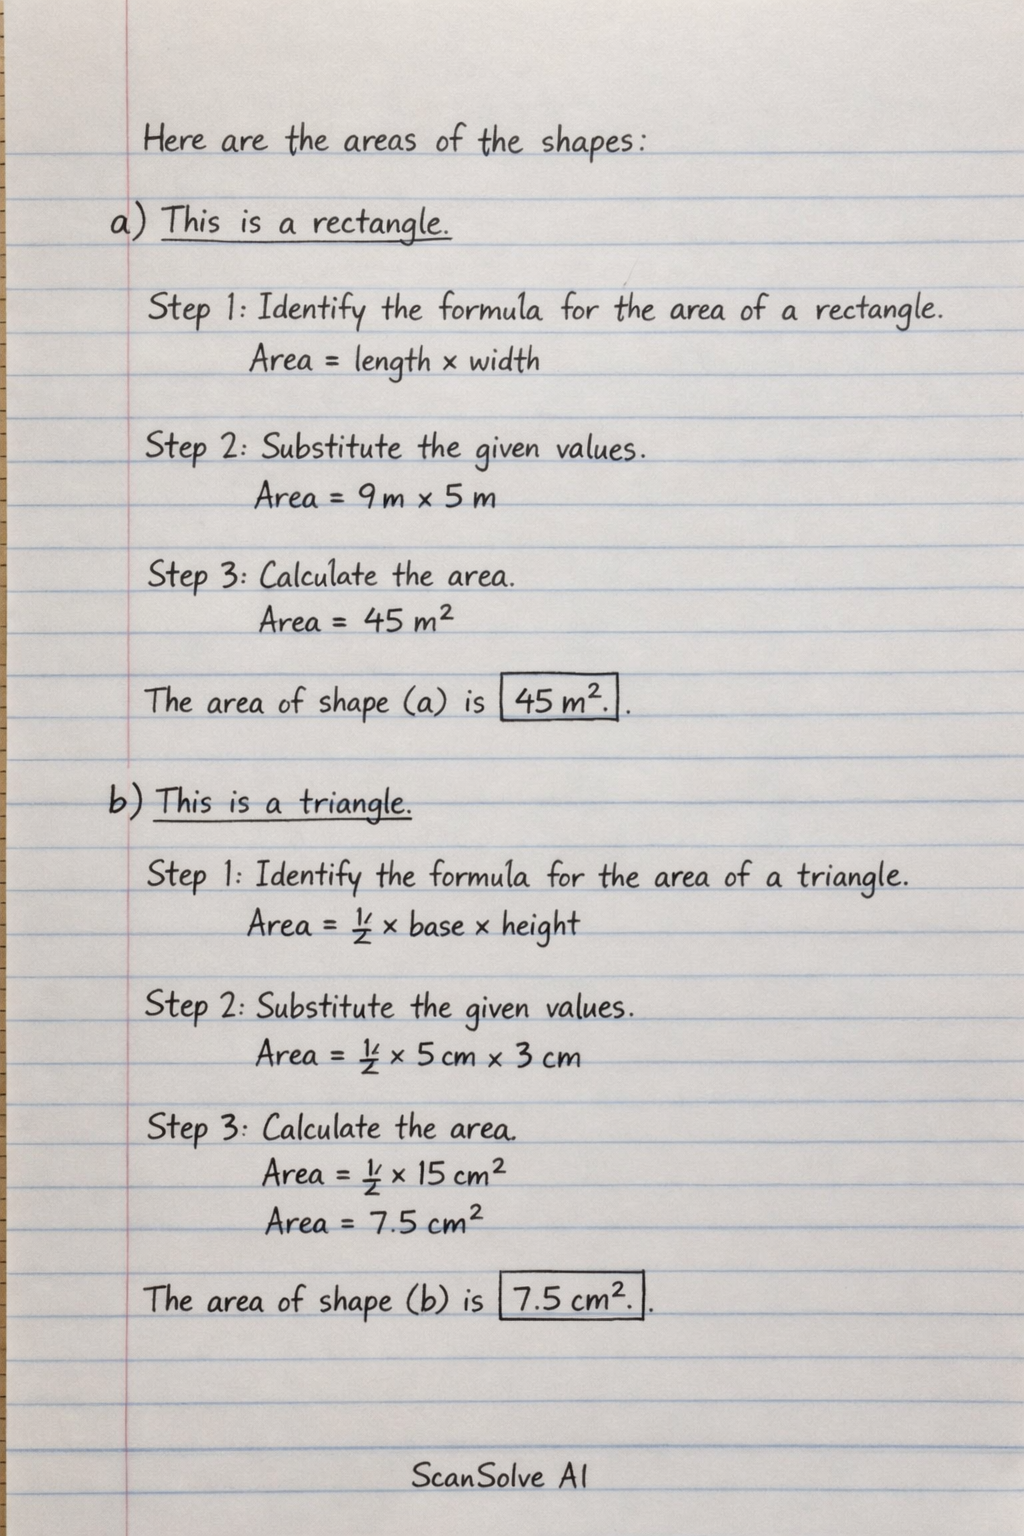 Here are the areas of the shapes:
a) This is a rectangle.
Step 1: Identify the formula for the area of a rectangle.
Area = length × width
Step 2: Substitute the given values.
Area = 9 m × 5 m
Step 3: Calculate the area.
Area = 45 m²
The area of shape (a) is 45 m². .
b) This is a triangle.
Step 1: Identify the formula for the area of a triangle.
Area = 1/2 × base × height
Step 2: Substitute the given values.
Area = 1/2 × 5 cm × 3 cm
Step 3: Calculate the area.
Area = 1/2 × 15 cm²
Area = 7.5 cm²
The area of shape (b) is 7.5 cm². .
ScanSolve AI